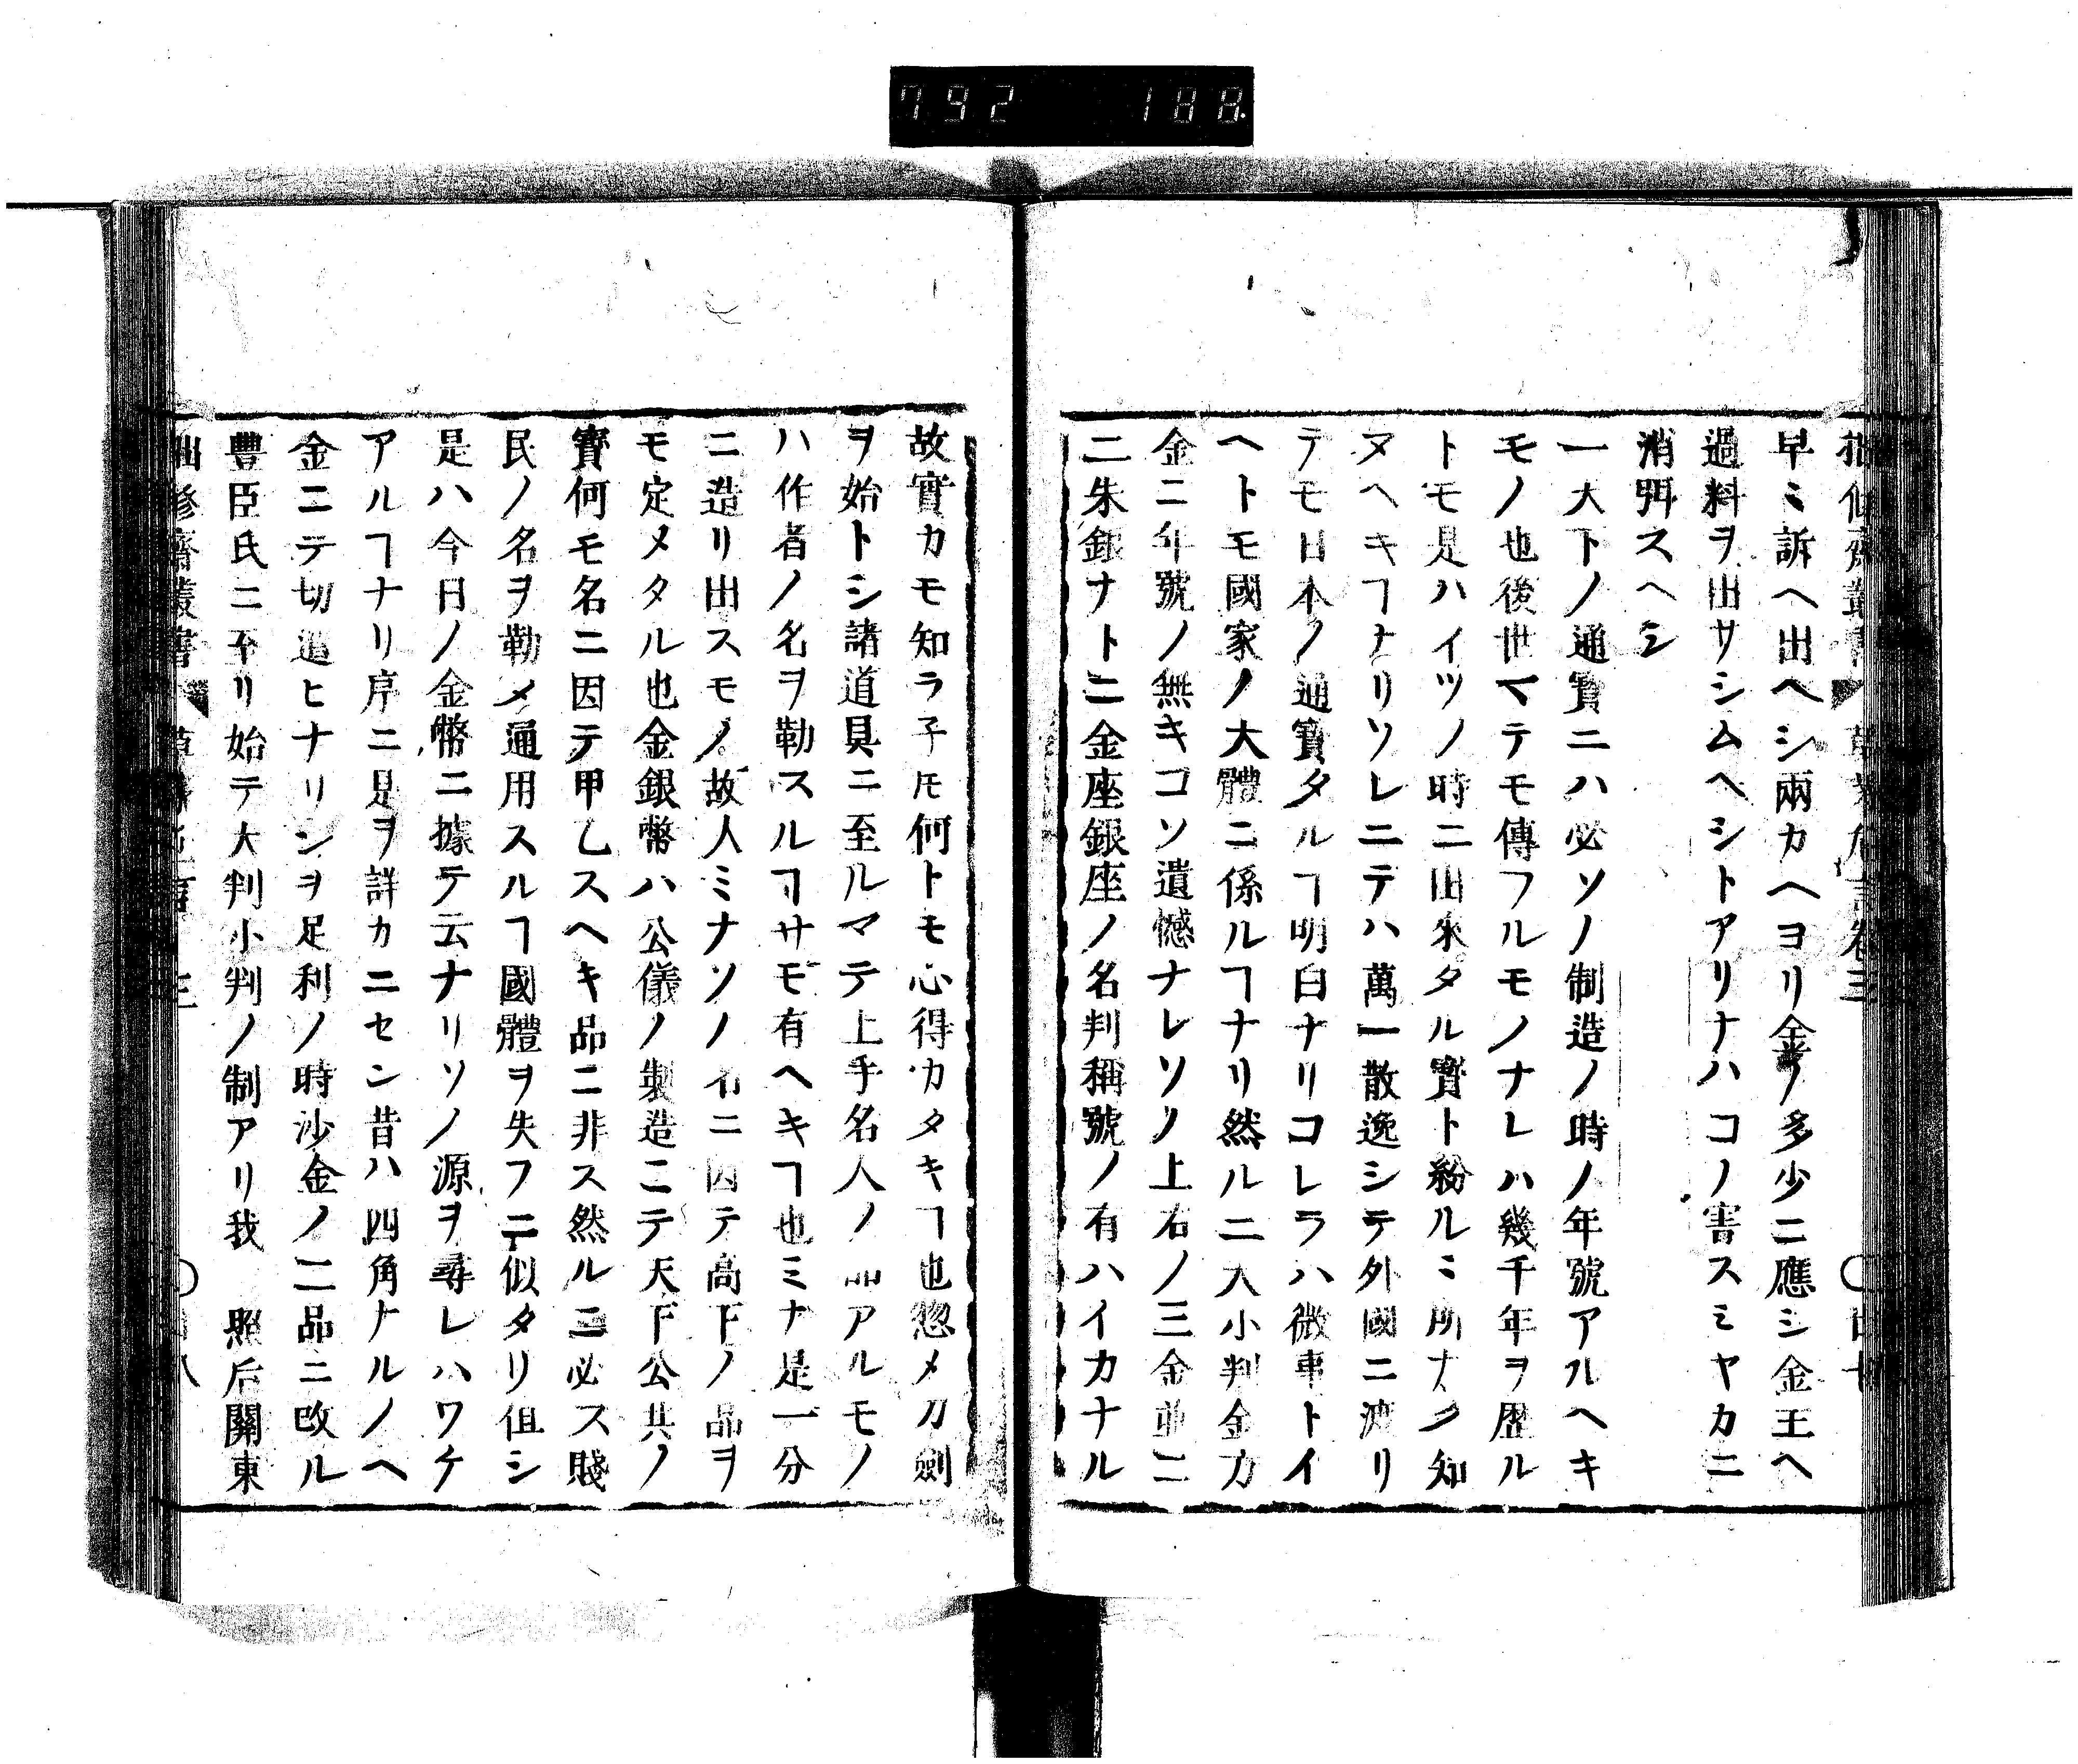 792 188
早ミ訴ヘ出ヘシ兩カヘヨリ金ノ多少ニ應シ金王ヘ
過料ヲ出サシムヘシトアリナハコノ害スミヤカニ
消弭スヘシ
一大下ノ通寳ニハ必ソノ制造ノ時ノ年號アルヘキ
モノ也後世マテモ傳フルモノナレハ幾千年ヲ歴ル
トモ是ハイツノ時ニ出來タル寳ト紛ルミ所ナク知
ヌヘキヿナリソレニテハ萬一散逸シテ外國ニ渡リ
テモ日本ノ通寳タルヿ明白ナリコレラハ微事トイ
ヘトモ國家ノ大體ニ係ルヿナリ然ルニ大小判金カ
金ニ年號ノ無キコソ遺憾ナレソノ上右ノ三金並ニ
二朱銀ナトニ金座銀座ノ名判稱號ノ有ハイカナル
故實カモ知ラ子𪜈何トモ心得カタキヿ也惣メ刀劍
ヲ始トシ諸道具ニ至ルマテ上手名人ノ品アルモノ
ハ作者ノ名ヲ勒スルヿサモ有ヘキヿ也ミナ是一分
ニ造リ出スモノ故人ミナソノ名ニ因テ高下ノ品ヲ
モ定メタル也金銀幣ハ公儀ノ製造ニテ天下公共ノ
寳何モ名ニ因テ甲乙スヘキ品ニ非ス然ルニ必ス賤
民ノ名ヲ勒メ通用スルヿ國體ヲ失フニ似タリ伹シ
是ハ今日ノ金幣ニ據テ云ナリソノ源ヲ尋レハワケ
アルヿナリ序ニ是ヲ詳カニセン昔ハ四角ナルノヘ
金ニテ切遣ヒナリシヲ足利ノ時沙金ノ二品ニ改ル
豊臣氏ニ至リ始テ大判小判ノ制アリ我 照后關東